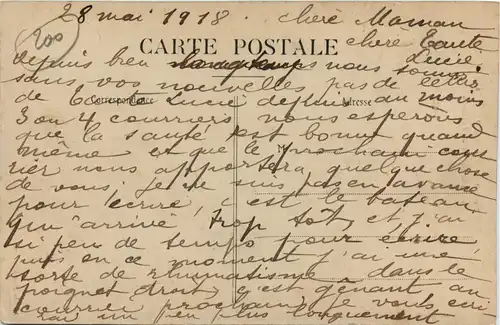 28 mai 1918. chère Maman
chère Tante
200
CARTE POSTALE
Lucie
depuis bien longtemps nous sommes
sans vos nouvelles pas de lettre
Correspondance
Adresse
de Tante Lucie depuis au moins
3 ou 4 courriers, nous espérons
que la santé est bonne quand
même et que le prochain cour
rier nous apportera quelque chose
de vous. Je ne suis pas en avance
pour écrire, c'est le bateau
qui arrive trop tôt, et j'ai
si peu de temps pour écrire
puis en ce moment j'ai une
sorte de rhumatisme dans le
poignet droit, c'est gênant au
courrier prochain, je vous écri
rai un peu plus longuement